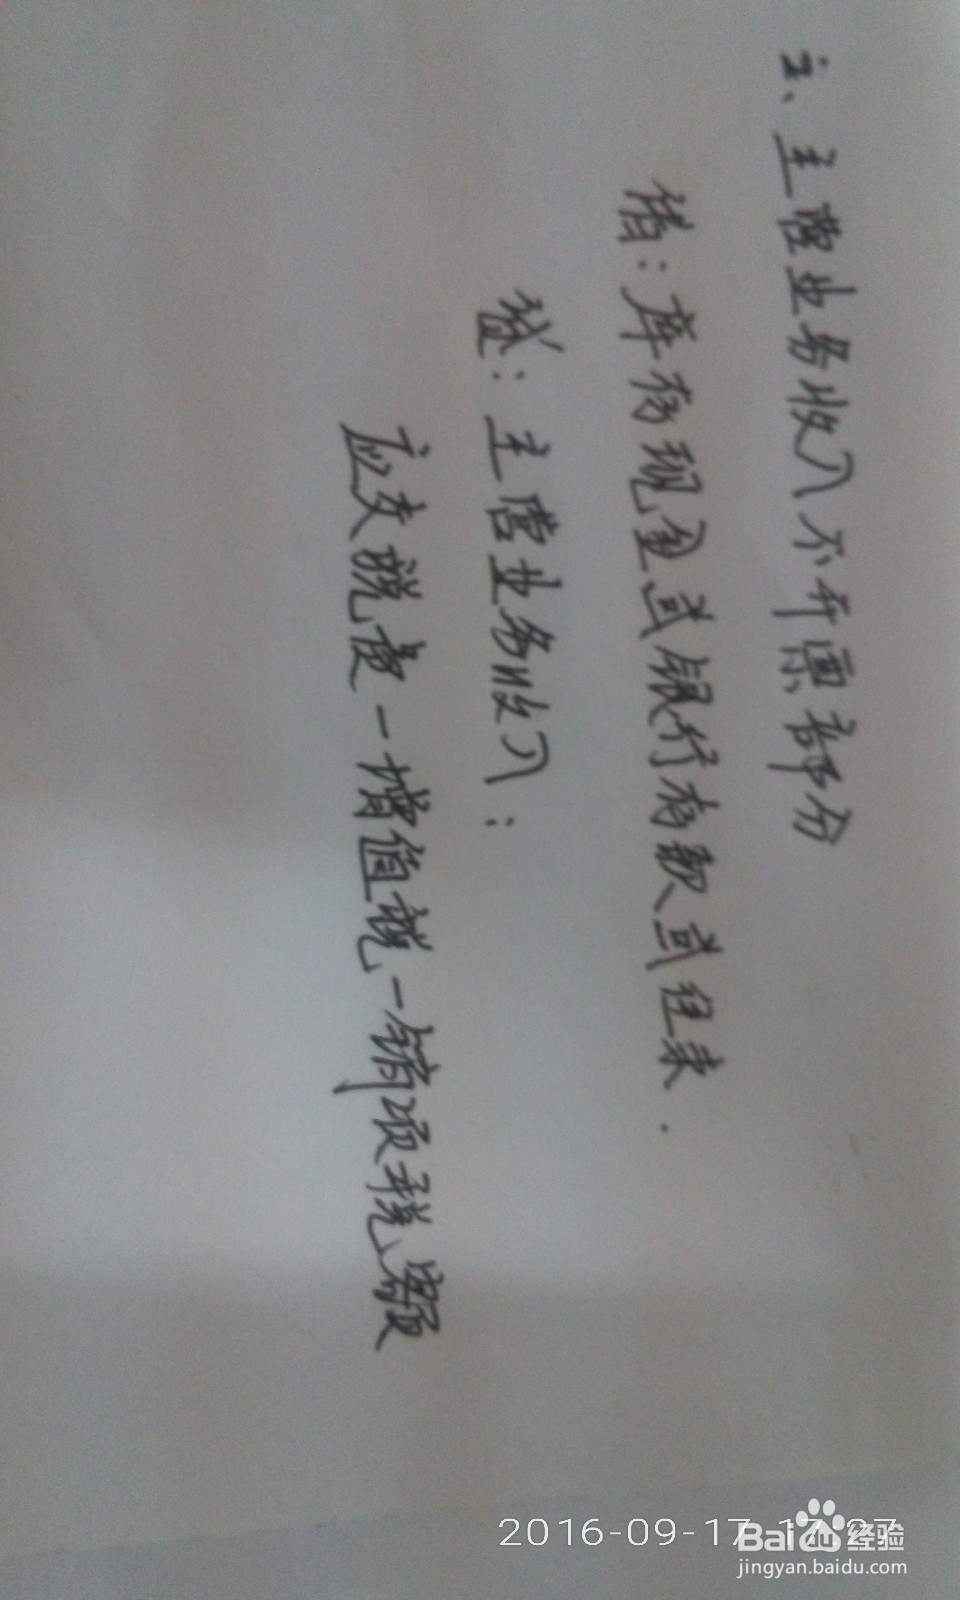 2、主营业务收入不开票部分
借：库存现金或银行存款或往来.
贷：主营业务收入：
应交税费一增值税一销项税额
2016-09-17 17:27
Bai 经验
jingyan.baidu.com